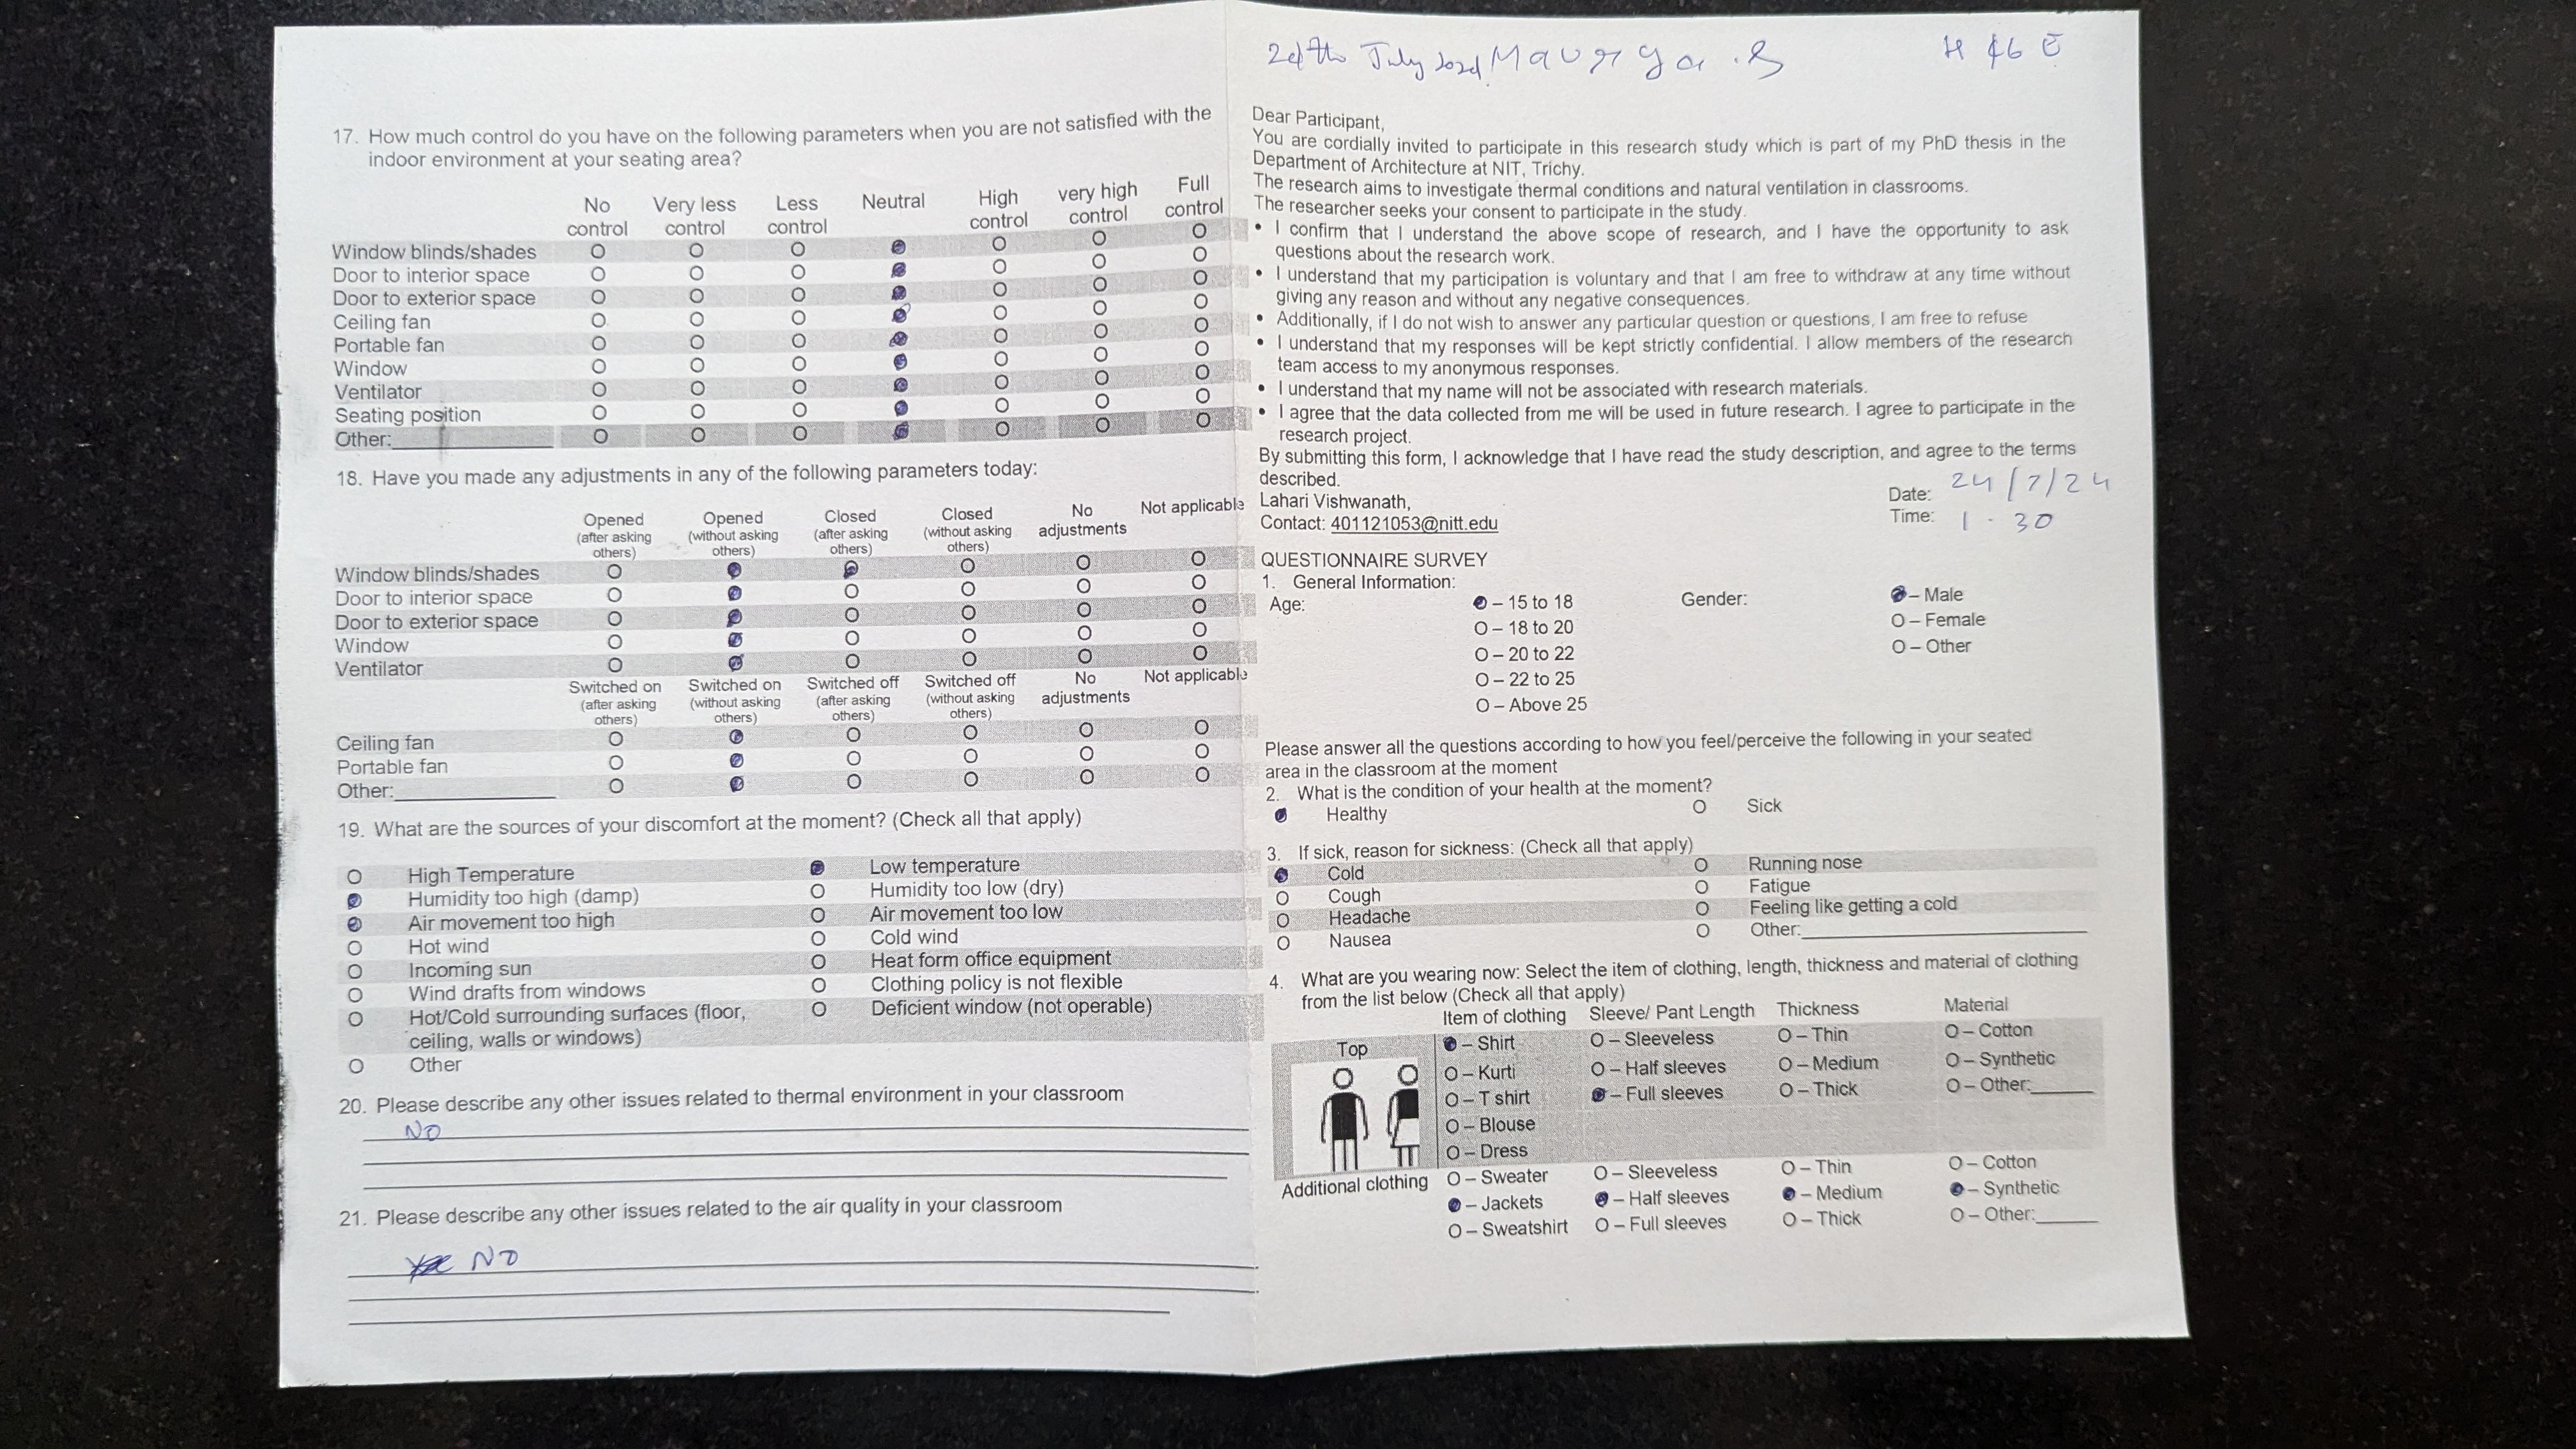 17. How much control do you have on the following parameters when you are not satisfied with the
indoor environment at your seating area?
No control Very less control Less control Neutral High control very high control Full control
Window blinds/shades O O O O O O
Door to interior space O O O O O O
Door to exterior space O O O O O O
Ceiling fan O O O O O O
Portable fan O O O O O O
Window O O O O O O
Ventilator O O O O O O
Seating position O O O O O O
Other: O O O O O O
18. Have you made any adjustments in any of the following parameters today:
Opened (after asking others) Opened (without asking others) Closed (after asking others) Closed (without asking others) No adjustments Not applicable
Window blinds/shades O O O O
Door to interior space O O O O O
Door to exterior space O O O O O
Window O O O O O
Ventilator O O O O O
Switched on (after asking others) Switched on (without asking others) Switched off (after asking others) Switched off (without asking others) No adjustments Not applicable
Ceiling fan O O O O O
Portable fan O O O O O
Other: O O O O O
19. What are the sources of your discomfort at the moment? (Check all that apply)
O High Temperature Low temperature
Humidity too high (damp) O Humidity too low (dry)
Air movement too high O Air movement too low
O Hot wind O Cold wind
O Incoming sun O Heat form office equipment
O Wind drafts from windows O Clothing policy is not flexible
O Hot/Cold surrounding surfaces (floor, O Deficient window (not operable)
ceiling, walls or windows)
O Other
20. Please describe any other issues related to thermal environment in your classroom
NO
21. Please describe any other issues related to the air quality in your classroom
NO
24th July 2024 Maurya.S
Dear Participant,
You are cordially invited to participate in this research study which is part of my PhD thesis in the
Department of Architecture at NIT, Trichy.
The research aims to investigate thermal conditions and natural ventilation in classrooms.
The researcher seeks your consent to participate in the study.
• I confirm that I understand the above scope of research, and I have the opportunity to ask
questions about the research work.
• I understand that my participation is voluntary and that I am free to withdraw at any time without
giving any reason and without any negative consequences.
• Additionally, if I do not wish to answer any particular question or questions, I am free to refuse
• I understand that my responses will be kept strictly confidential. I allow members of the research
team access to my anonymous responses.
• I understand that my name will not be associated with research materials.
• I agree that the data collected from me will be used in future research. I agree to participate in the
research project.
By submitting this form, I acknowledge that I have read the study description, and agree to the terms
described.
Lahari Vishwanath, Date: 24/7/24
Contact: 401121053@nitt.edu Time: 1.30
QUESTIONNAIRE SURVEY
1. General Information:
Age: – 15 to 18 Gender: – Male
O – 18 to 20 O – Female
O – 20 to 22 O – Other
O – 22 to 25
O – Above 25
Please answer all the questions according to how you feel/perceive the following in your seated
area in the classroom at the moment
2. What is the condition of your health at the moment?
Healthy O Sick
3. If sick, reason for sickness: (Check all that apply)
Cold O Running nose
O Cough O Fatigue
O Headache O Feeling like getting a cold
O Nausea O Other:
4. What are you wearing now: Select the item of clothing, length, thickness and material of clothing
from the list below (Check all that apply)
Item of clothing Sleeve/ Pant Length Thickness Material
Top – Shirt O – Sleeveless O – Thin O – Cotton
O – Kurti O – Half sleeves O – Medium O – Synthetic
O – T shirt – Full sleeves O – Thick O – Other:
O – Blouse
O – Dress
Additional clothing O – Sweater O – Sleeveless O – Thin O – Cotton
– Jackets – Half sleeves – Medium – Synthetic
O – Sweatshirt O – Full sleeves O – Thick O – Other: